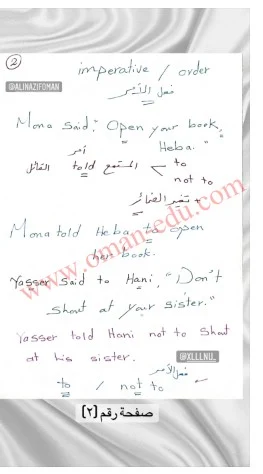 2
imperative / order
@ALINAZIFOMAN
فعل الأمر
Mona said, "Open your book,
Heba."
أمر
القائل told المستمع to
not to
+ تغير الضمائر
www.oman-edu.com
Mona told Heba to open
her book.
Yasser said to Hani, "Don't
shout at your sister."
Yasser told Hani not to shout
at his sister.
@XLLLNU_
فعل الأمر
to / not to
صفحة رقم [٢]